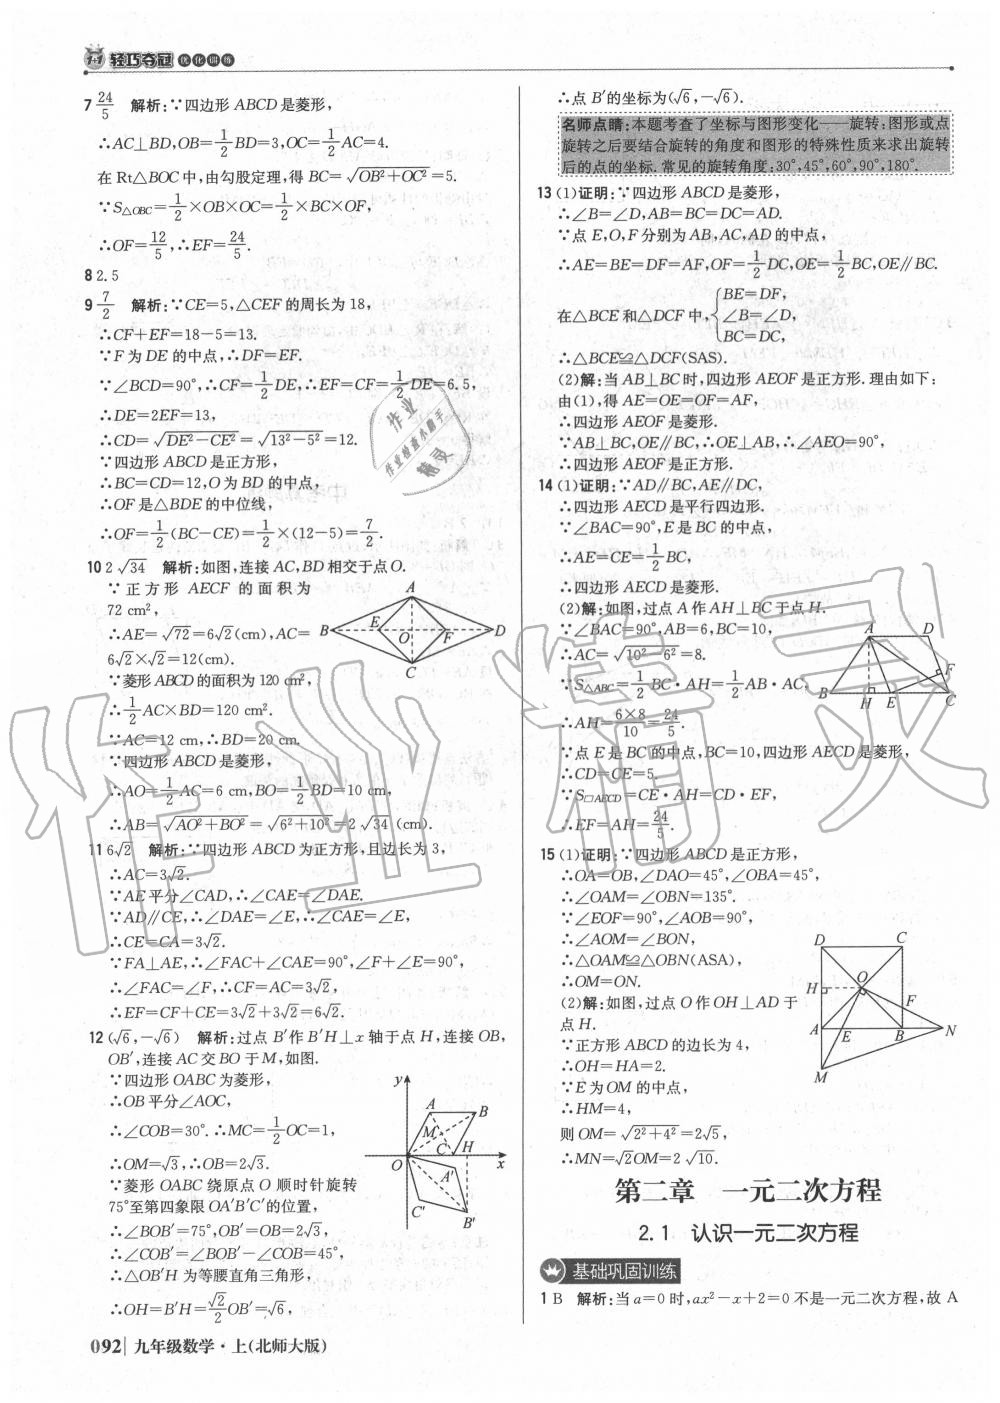 1+1 轻巧夺冠 优化训练
7 24/5 解析:∵四边形 ABCD 是菱形,
∴AC⊥BD,OB=1/2BD=3,OC=1/2AC=4.
在 Rt△BOC 中,由勾股定理,得 BC=√(OB²+OC²)=5.
∵S△OBC=1/2×OB×OC=1/2×BC×OF,
∴OF=12/5,∴EF=24/5.
8 2.5
9 7/2 解析:∵CE=5,△CEF 的周长为 18,
∴CF+EF=18-5=13.
∵F 为 DE 的中点,∴DF=EF.
∵∠BCD=90°,∴CF=1/2DE,∴EF=CF=1/2DE=6.5,
∴DE=2EF=13,
∴CD=√(DE²-CE²)=√(13²-5²)=12.
∵四边形 ABCD 是正方形,
∴BC=CD=12,O 为 BD 的中点,
∴OF 是△BDE 的中位线,
∴OF=1/2(BC-CE)=1/2×(12-5)=7/2.
10 2√34 解析:如图,连接 AC,BD 相交于点 O.
∵正方形 AECF 的面积为
72 cm²,
∴AE=√72=6√2(cm),AC=
6√2×√2=12(cm).
∵菱形 ABCD 的面积为 120 cm²,
∴1/2AC×BD=120 cm².
∵AC=12 cm,∴BD=20 cm.
∵四边形 ABCD 是菱形,
∴AO=1/2AC=6 cm,BO=1/2BD=10 cm,
∴AB=√(AO²+BO²)=√(6²+10²)=2√34(cm).
A
B E O F D
C
11 6√2 解析:∵四边形 ABCD 为正方形,且边长为 3,
∴AC=3√2.
∵AE 平分∠CAD,∴∠CAE=∠DAE.
∵AD∥CE,∴∠DAE=∠E,∴∠CAE=∠E,
∴CE=CA=3√2.
∵FA⊥AE,∴∠FAC+∠CAE=90°,∠F+∠E=90°,
∴∠FAC=∠F,∴CF=AC=3√2,
∴EF=CF+CE=3√2+3√2=6√2.
12 (√6,-√6) 解析:过点 B′作 B′H⊥x 轴于点 H,连接 OB,
OB′,连接 AC 交 BO 于 M,如图.
∵四边形 OABC 为菱形,
∴OB 平分∠AOC,
∴∠COB=30°.∴MC=1/2OC=1,
∴OM=√3,∴OB=2√3.
∵菱形 OABC 绕原点 O 顺时针旋转
75°至第四象限 OA′B′C′的位置,
∴∠BOB′=75°,OB′=OB=2√3,
∴∠COB′=∠BOB′-∠COB=45°,
∴△OB′H 为等腰直角三角形,
∴OH=B′H=√2/2OB′=√6,
y
A B
M
C H
O x
A′
C′
B′
092 九年级数学·上(北师大版)
∴点 B′的坐标为(√6,-√6).
名师点睛:本题考查了坐标与图形变化——旋转:图形或点
旋转之后要结合旋转的角度和图形的特殊性质来求出旋转
后的点的坐标.常见的旋转角度:30°,45°,60°,90°,180°.
13 (1)证明:∵四边形 ABCD 是菱形,
∴∠B=∠D,AB=BC=DC=AD.
∵点 E,O,F 分别为 AB,AC,AD 的中点,
∴AE=BE=DF=AF,OF=1/2DC,OE=1/2BC,OE∥BC.
在△BCE 和△DCF 中,{BE=DF,
∠B=∠D,
BC=DC,
∴△BCE≌△DCF(SAS).
(2)解:当 AB⊥BC 时,四边形 AEOF 是正方形.理由如下:
由(1),得 AE=OE=OF=AF,
∴四边形 AEOF 是菱形.
∵AB⊥BC,OE∥BC,∴OE⊥AB,∴∠AEO=90°,
∴四边形 AEOF 是正方形.
14 (1)证明:∵AD∥BC,AE∥DC,
∴四边形 AECD 是平行四边形.
∵∠BAC=90°,E 是 BC 的中点,
∴AE=CE=1/2BC,
∴四边形 AECD 是菱形.
(2)解:如图,过点 A 作 AH⊥BC 于点 H.
∵∠BAC=90°,AB=6,BC=10,
∴AC=√(10²-6²)=8.
∵S△ABC=1/2BC·AH=1/2AB·AC,
∴AH=6×8/10=24/5.
∵点 E 是 BC 的中点,BC=10,四边形 AECD 是菱形,
∴CD=CE=5.
∵S□AECD=CE·AH=CD·EF,
∴EF=AH=24/5.
A D
F
B H E C
15 (1)证明:∵四边形 ABCD 是正方形,
∴OA=OB,∠DAO=45°,∠OBA=45°,
∴∠OAM=∠OBN=135°.
∵∠EOF=90°,∠AOB=90°,
∴∠AOM=∠BON,
∴△OAM≌△OBN(ASA),
∴OM=ON.
(2)解:如图,过点 O 作 OH⊥AD 于
点 H.
∵正方形 ABCD 的边长为 4,
∴OH=HA=2.
∵E 为 OM 的中点,
∴HM=4,
则 OM=√(2²+4²)=2√5,
∴MN=√2OM=2√10.
D C
H O
F
A E B N
M
第二章 一元二次方程
2.1 认识一元二次方程
基础巩固训练
1 B 解析:当 a=0 时,ax²-x+2=0 不是一元二次方程,故 A
作业精灵
作业
作业检查小助手
精灵